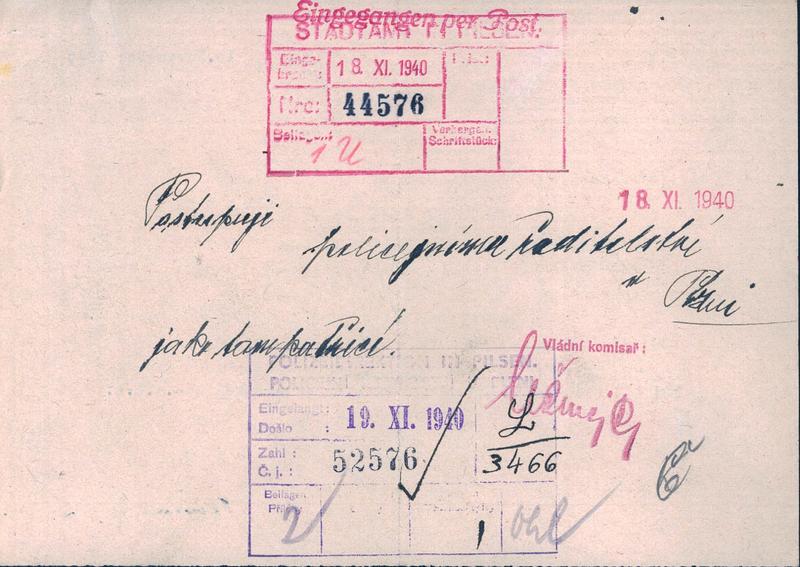 Eingegangen per Post.
STADTAMT IN PILSEN.
18. XI. 1940
Nro: 44576
Beilagen:
Vorhergeh.
Schriftstück:
1
18 XI. 1940
Postupuji
policejnímu ředitelství
v Plzni
jako tam patřící
Vládní komisař:
POLIZEIDIREKTION IN PILSEN.
POLICEJNÍ
Eingelangt:
Došlo : 19. XI. 1940
Zahl :
Č. j. : 52576
L
3466
Beilagen
2
1